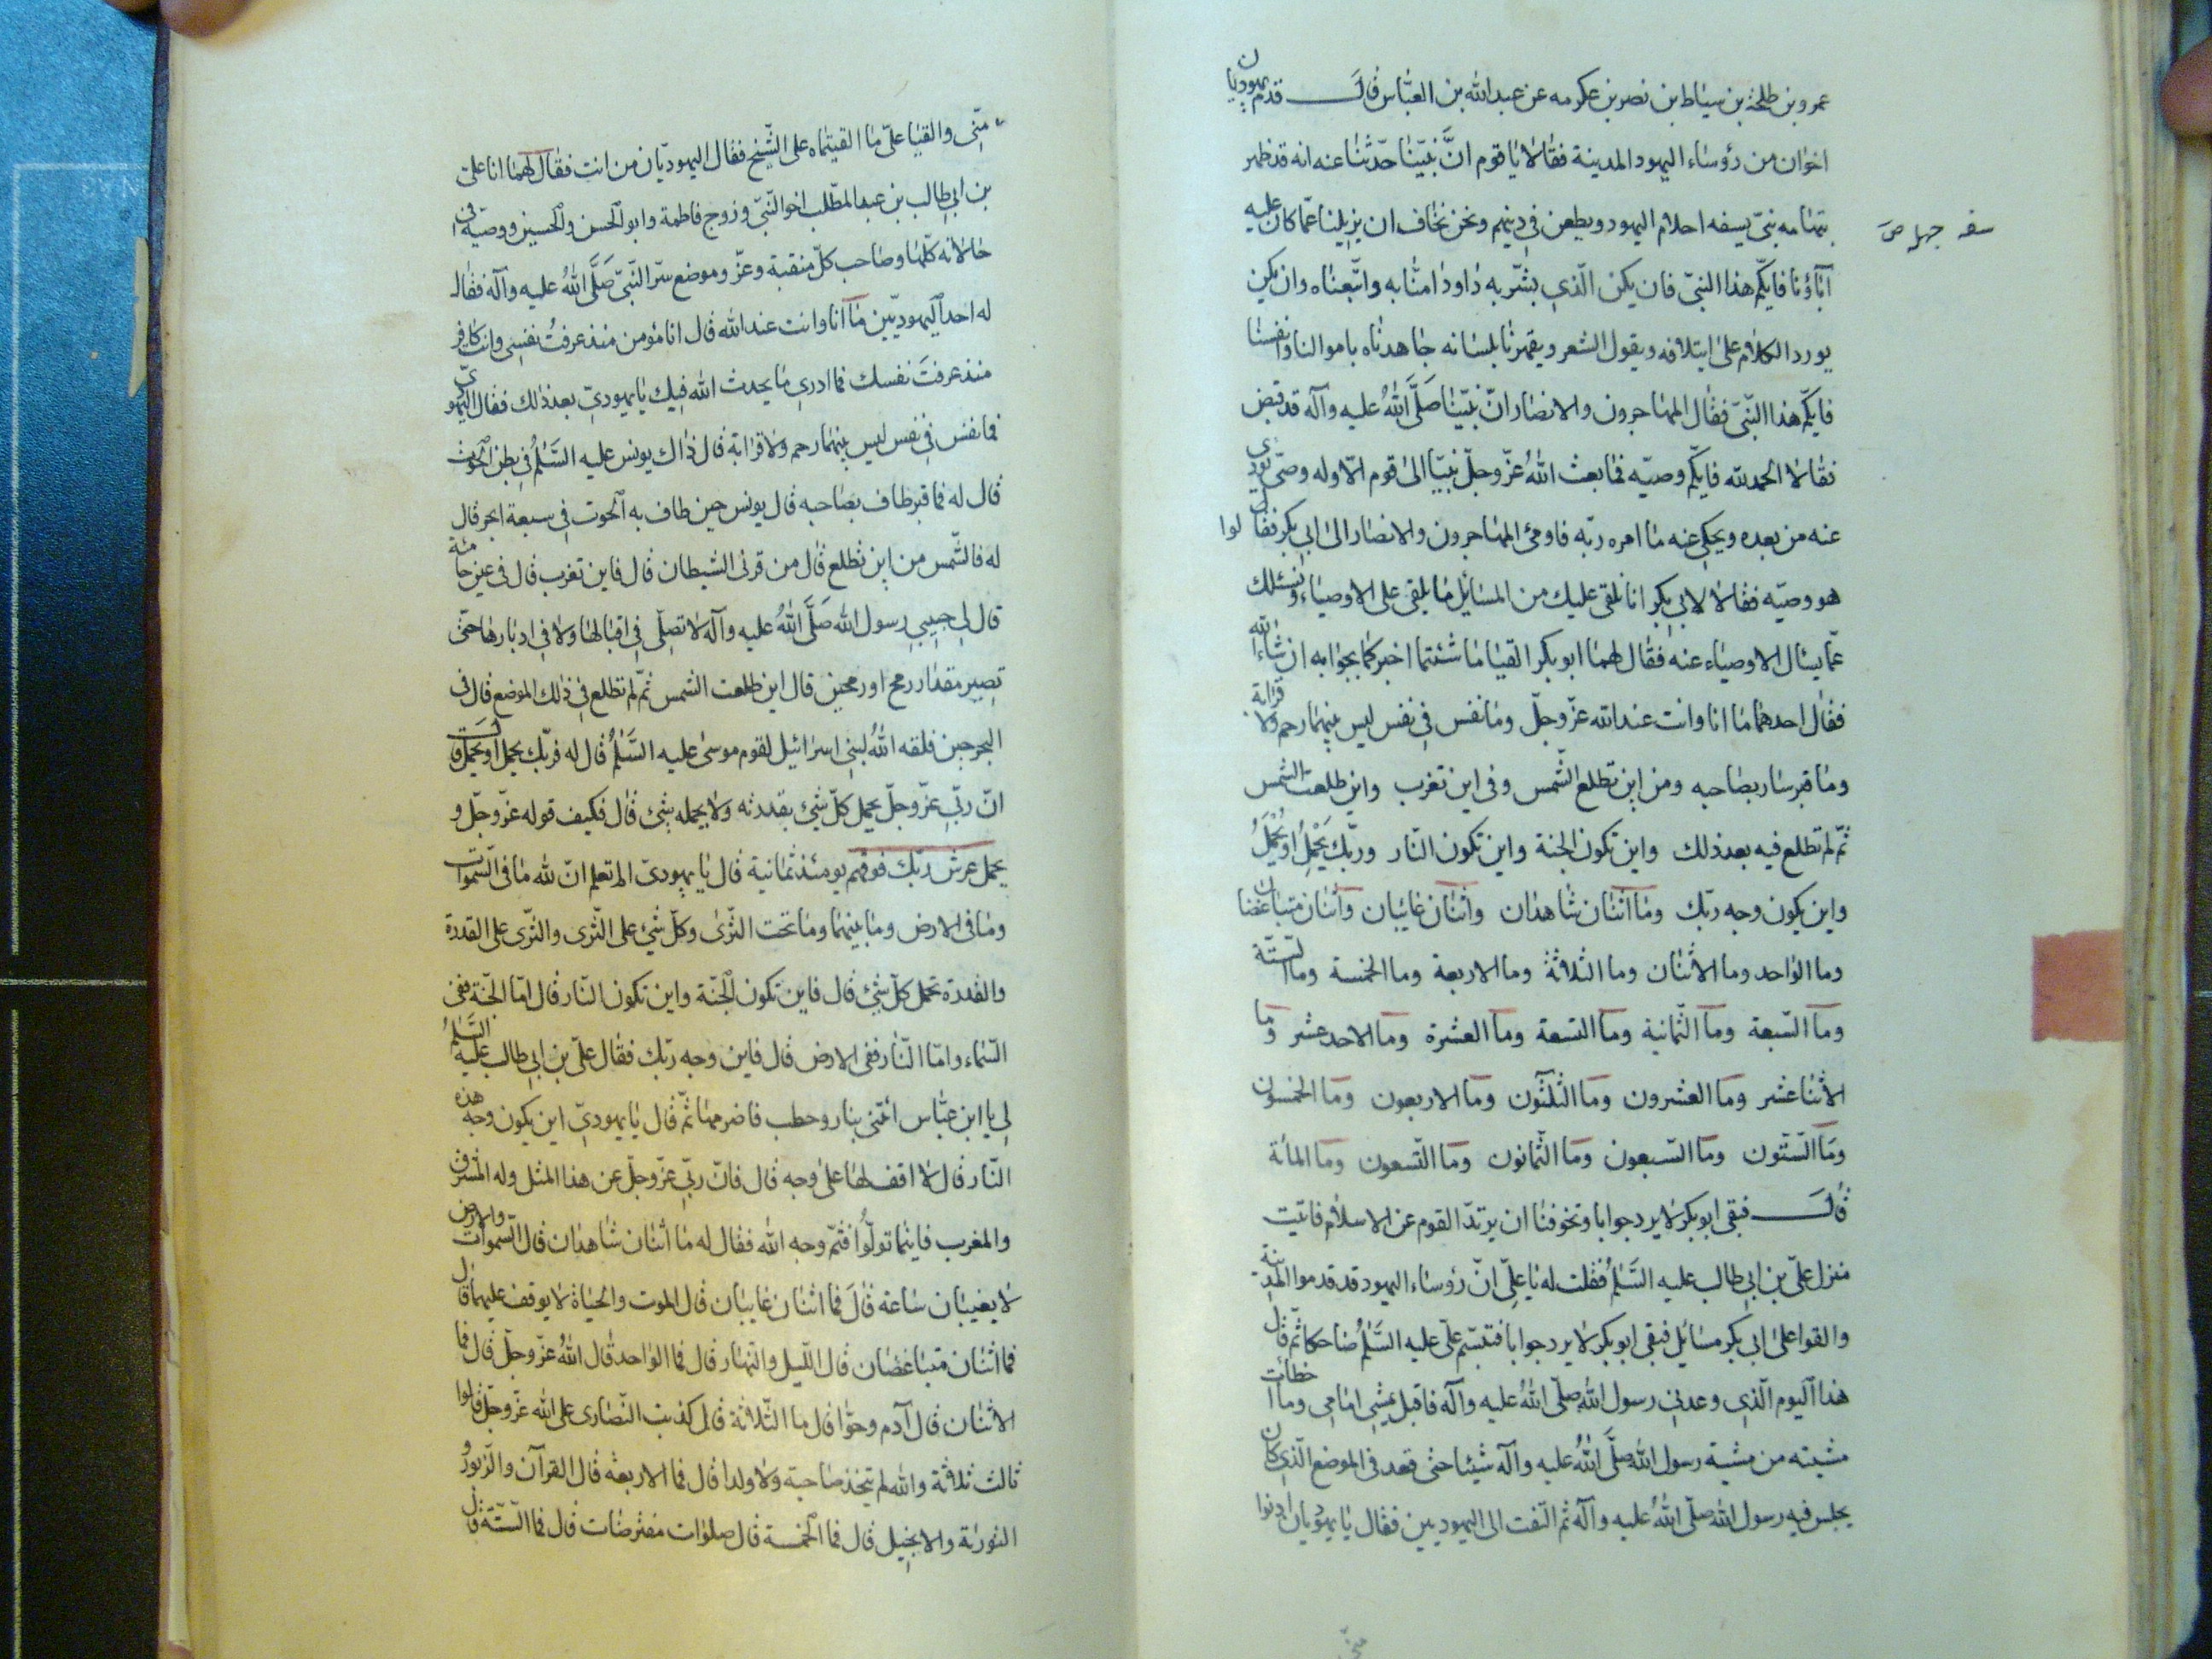 عمرو بن طلحة بن سياط بن نصر بن عكرمه عن عبدالله بن العبّاس قال قدم يهوديان
اخوان من رؤساء اليهود المدينة فقالا يا قوم انّ نبيّنا حدّثنا عنه انه قد ظهر
بتهامه نبيّ يسفه احلام اليهود ويطعن في دينهم ونحن نخاف ان يزيلنا عمّا كان عليه
سفه جهل ص
آباؤنا فايّكم هذا النبيّ فان يكن الّذي بشّر به داود امنّا به واتّبعناه وان يكن
يورد الكلام على ايتلافه ويقول الشعر ويقهرنا بلسانه جاهدناه باموالنا وانفسنا
فايّكم هذا النّبيّ فقال المهاجرون والانصار انّ نبيّنا صَلَّى اللهُ عليه وآله قد قبض
فقالا الحمد لله فايّكم وصيّه فما بعث اللهُ عزّ وجلّ نبيّا الى قوم الّا وله وصيّ يؤدي
عنه من بعده ويحكي عنه ما امره ربّه فاومئ المهاجرون والانصار الى ابي بكر فقالوا
هو وصيّه فقالا لابي بكر انا نلقى عليك من المسائل ما يلقى على الاوصياء ونسئلك
عمّا يسال الاوصياء عنه فقال لهما ابو بكر القيا ما شئتما اخبركما بجوابه ان شاء الله
فقال احدهما ما انا وانت عند الله عزّ وجلّ وما نفس في نفس ليس بينهما رحم ولا قرابة
وما قبر سار بصاحبه ومن اين تطلع الشّمس وفي اين تغرب واين طلعت الشمس
ثمّ لم تطلع فيه بعد ذلك واين تكون الجنة واين تكون النّار وربّك يَحْمِلُ او يُحْمَلُ
واين يكون وجه ربّك وما اثنان شاهدان واثنان غايبان واثنان متباغضان
وما الواحد وما الاثنان وما الثلاثة وما الاربعة وما الخمسة وما السّتّة
وما السّبعة وما الثّمانية وما التسعة وما العشرة وما الاحد عشر وما
الاثنا عشر وما العشرون وما الثّلثون وما الاربعون وما الخمسون
وما السّتّون وما السّبعون وما الثّمانون وما التّسعون وما المأة
قُالَ فبقى ابو بكر لا يرد جوابا وتخوفنا ان يرتدّ القوم عن الاسلام فاتيت
منزل عليّ بن ابي طالب عليه السَّلٰمُ فقلت له يا عليّ انّ رؤساء اليهود قد قدموا المدينة
والقوا على ابي بكر مسائل فبقى ابو بكر لا يرد جوابا فتبسّم عليّ عليه السَّلٰمُ ضاحكا ثمّ قال
هذا اليوم الّذي وعدني رسول الله صلّى اللهُ عليه وآله فاقبل يمشي امامي وما اخطأت
مشيته من مشية رسول الله صلَّى اللهُ عليه وآله شيئا حتى قعد في الموضع الّذي كان
يجلس فيه رسول الله صلّى اللهُ عليه وآله ثم التفت الى اليهوديين فقال يا يهوديان ادنوا
منّي
منّي والقيا علىّ ما القيتماه على الشّيخ فقال اليهوديّان من انت فقال لهما انا عليّ
بن ابي طالب بن عبد المطّلب اخو النّبيّ وزوج فاطمة وابو الحسن والحسين ووصيّه في
حالاته كلّها وصاحب كلّ منقبة وعزّ وموضع سرّ النّبيّ صَلَّى اللهُ عليه وآله فقال
له احد اليهوديّين ما انا وانت عند الله قال انا مؤمن منذ عرفتُ نفسي وانت كافر
منذ عرفتَ نفسك فما ادري ما يحدث الله فيك يا يهوديّ بعد ذلك فقال اليهوديّ
فما نفس في نفس ليس بينهما رحم ولا قرابة قال ذاك يونس عليه السَّلٰمُ في بطن الحوت
قال له فما قبر طاف بصاحبه قال يونس حين طاف به الحوت في سبعة ابحر قال
له فالشّمس من اين تطلع قال من قرني الشيطان قال فاين تغرب قال في عين حامئة
قال لي حبيبي رسول الله صَلَّى اللهُ عليه وآله لا تصلّى في اقبالها ولا في ادبارها حتّى
تصير مقدار رمح او رمحين قال اين طلعت الشمس ثمّ لم تطلع في ذلك الموضع قال في
البحر حين فلقه اللهُ لبني اسرائيل لقوم موسى عليه السَّلٰمُ قال له فربّك يحمل او يحمل قال
انّ ربّي عزّ وجلّ يحمل كلّ شيئ بقدرته ولا يحمله شئ قال فكيف قوله عزّ وجلّ و
يحمل عرش ربّك فوقهم يومئذ ثمانية قال يا يهوديّ الم تعلم انّ لله ما في السّموات
وما في الارض وما بينهما وما تحت الثّرى وكلّ شيئ على الثّرى والثّرى على القدرة
والقدرة تحمل كلّ شيئ قال فاين تكون الجنّة واين تكون النّار قال امّا الجنّة ففي
السّماء وامّا النّار ففي الارض قال فاين وجه ربّك فقال عليّ بن ابي طالب عليه السَّلٰمُ
لي يا ابن عبّاس ائتني بنار وحطب فاضرمها ثمّ قال يا يهوديّ اين يكون وجه هذه
النّار قال لا اقف لها على وجه قال فانّ ربّي عزّ وجلّ عن هذا المثل وله المشرق
والمغرب فاينما تولّوا فثمّ وجه الله فقال له ما اثنان شاهدان قال السّموات والارض
لا يغيبان ساعة قالَ فما اثنان غايبان قال الموت والحياة لا يوقف عليهما قال
فما اثنان متباغضان قال اللّيل والنّهار قال فما الواحد قال اللهُ عزّ وجلّ قال فما
الاثنان قال آدم وحوّا قال ما الثّلاثة قال كذبت النّصارى على الله عزّ وجلّ قالوا
ثالث ثلاثة والله لم يتخذ صاحبة ولا ولدا قال فما الاربعة قال القرآن والزّبور و
التورية والانجيل قال فما الخمسة قال صلوات مفترضات قال فما السّتّة قال